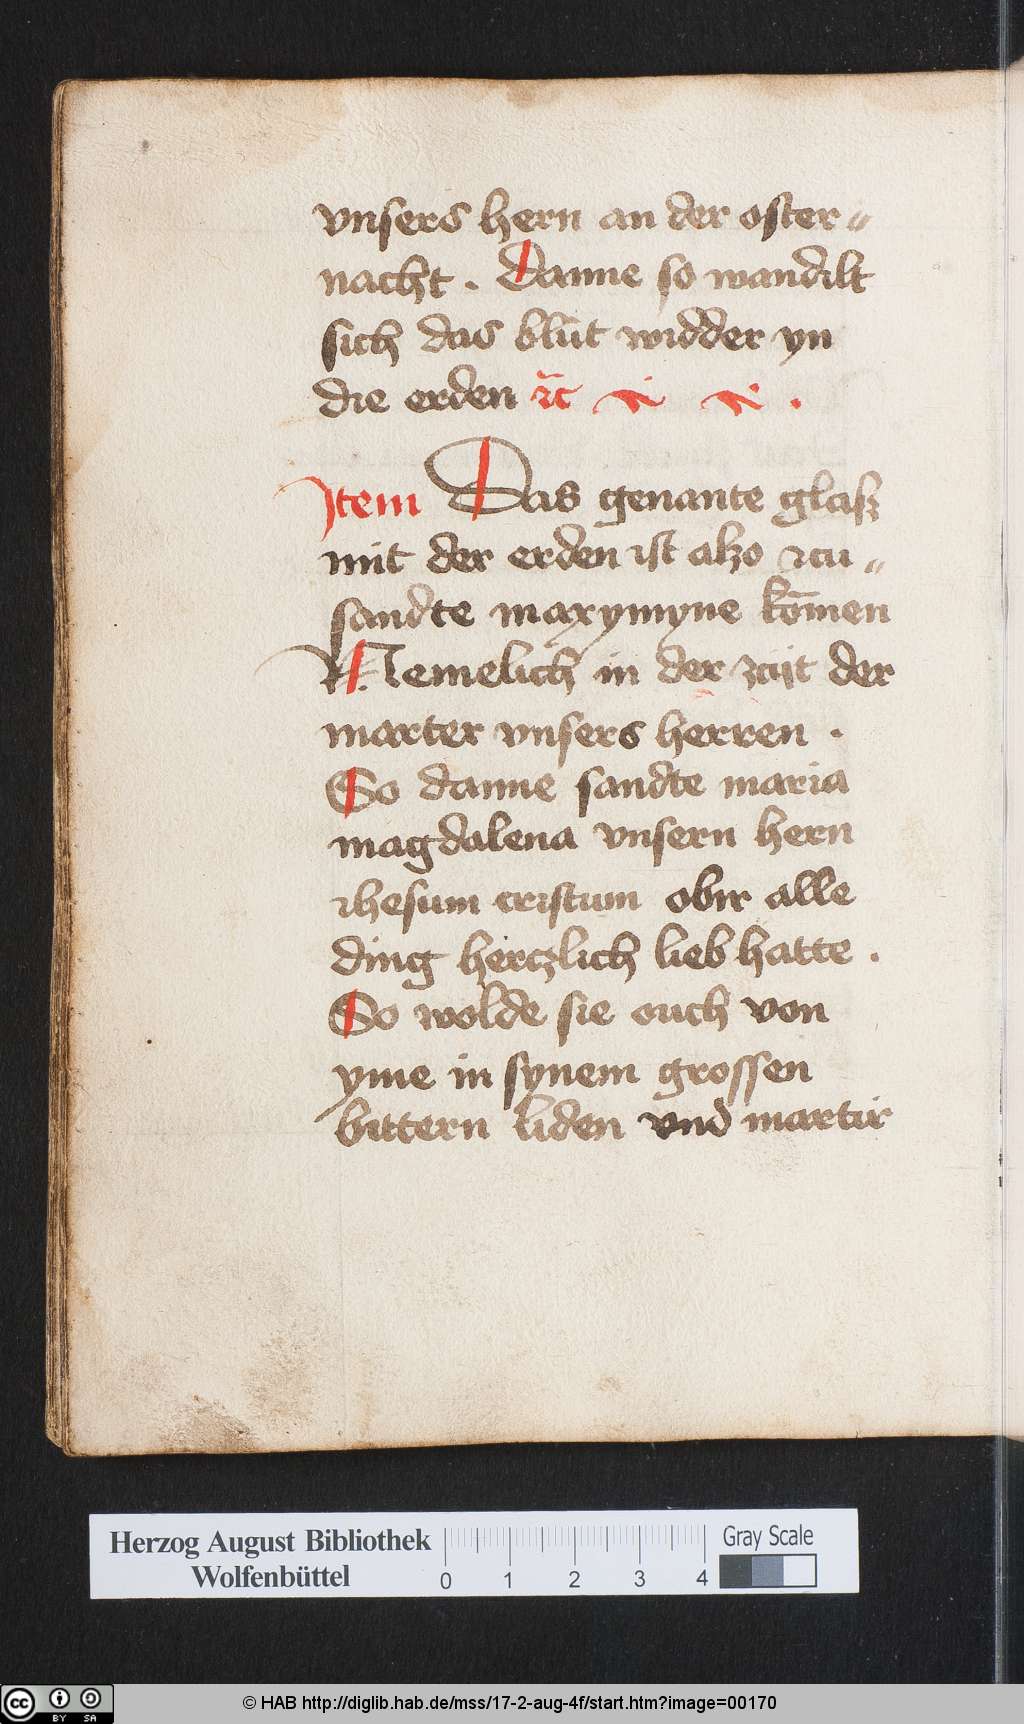 vnsers hern an der oster〃
nacht . Danne so wandilt
sich das blůt widder yn
die erden ꝛc̄
Item Das genante glasz
mit der erden ist alzo zcu〃
sandte maxymyne kōmen
Nemelich in der zciit der
marter vnsers herren .
So danne sandte maria
magdalena vnsern hern
ihesum cristum obir alle
ding hertzlich lieb hatte .
So wolde sie ouch von
yme in synem grossen
bittern liden vnd martir
Herzog August Bibliothek
Wolfenbüttel
0 1 2 3 4
Gray Scale
cc BY SA
© HAB http://diglib.hab.de/mss/17-2-aug-4f/start.htm?image=00170